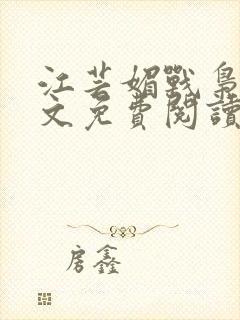 江芸媚戰梟
文免費閱讀
房鑫